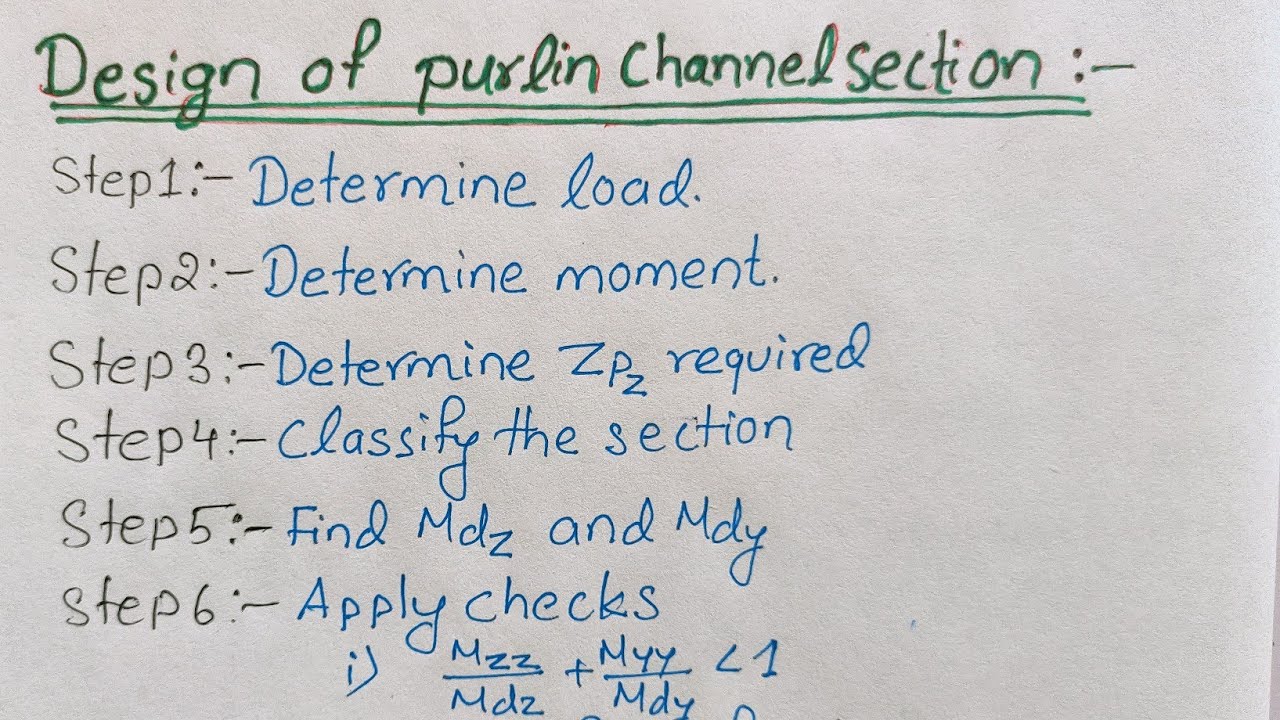 Design of purlin Channel section :-
Step1:- Determine load.
Step2:- Determine moment.
Step3:- Determine Zpz required
Step4:- Classify the section
Step5:- Find Mdz and Mdy
Step6:- Apply checks
i) Mzz/Mdz + Myy/Mdy < 1